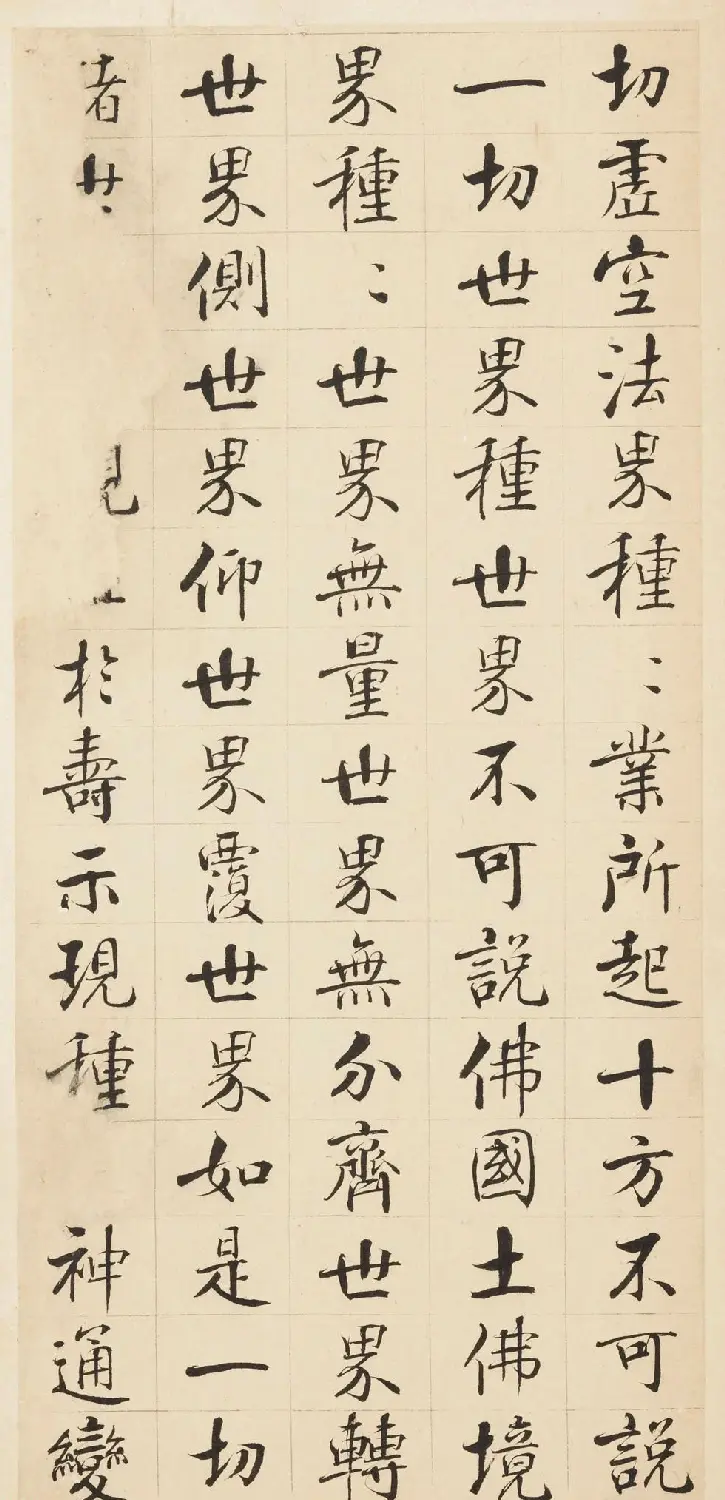 切虚空法界種〻業所起十方不可說
一切世界種世界不可說佛國土佛境
界種〻世界無量世界無分齊世界轉
世界側世界仰世界覆世界如是一切
者 於壽示現種 神通變